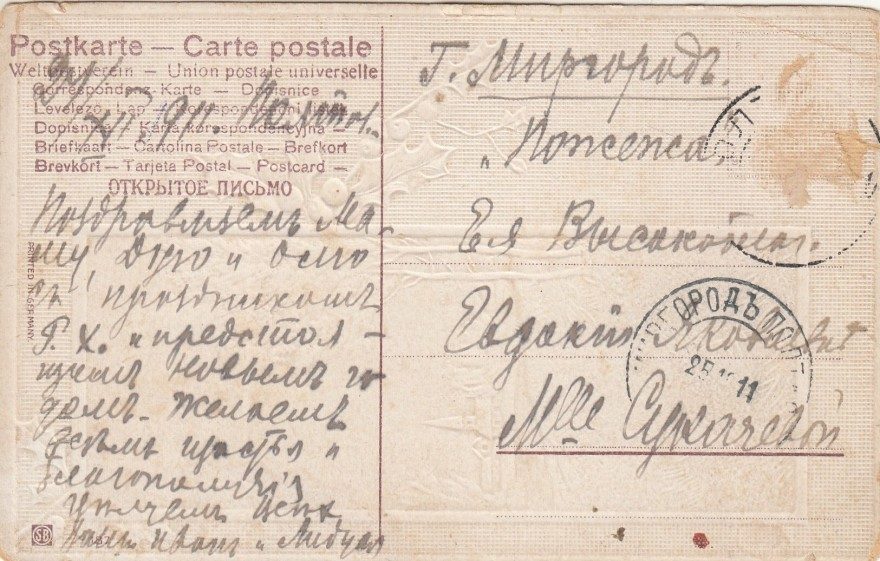 Postkarte — Carte postale
Weltpostverein — Union postale universelle
Correspondenz-Karte — Dopisnice
Levelező-Lap — Correspondenzkarte
Dopisnica — Karta korespondencyjna —
Briefkaart — Cartolina Postale — Brefkort
Brevkort — Tarjeta Postal — Postcard —
ОТКРЫТОЕ ПИСЬМО
1911.
Поздравляемъ Ма-
шу, и
праздникомъ
Р. Х. и предстоя-
щимъ новымъ го-
домъ. Желаемъ
всѣмъ щастья и
благополучія
Цѣлуемъ
и
PRINTED IN GERMANY
SB
Г. Миргородъ.
Ея Высокоблаг.
Евдокіи Яковлевнѣ
Mlle Сукачевой
МИРГОРОДЪ ПОЛТ
25 12 11